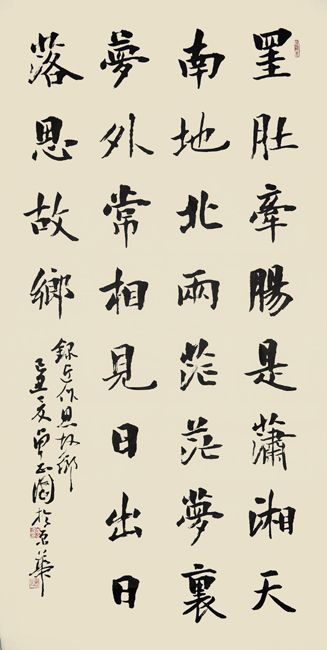 罣肚牽腸是瀟湘天
南地北兩茫茫夢裏
夢外常相見日出日
落思故鄉
錄近作思故鄉
己丑之夏曾正國於京華